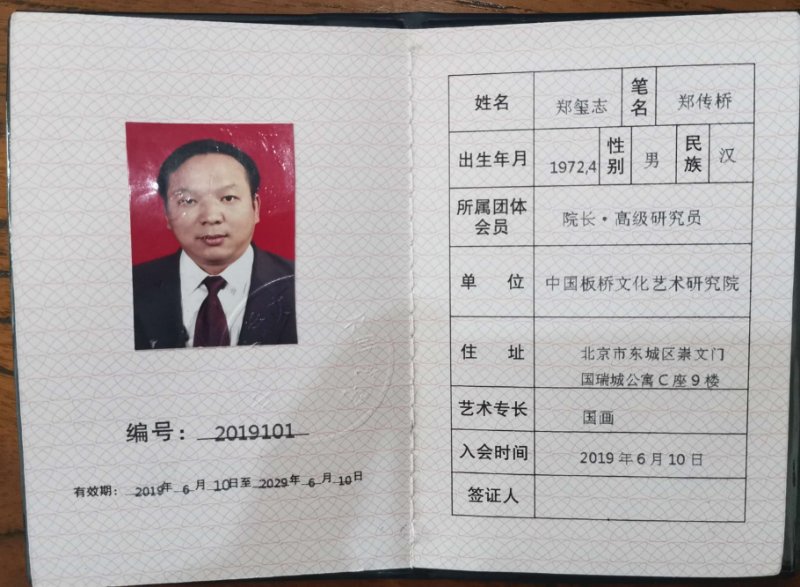 编号：2019101
有效期：2019年6月10日至2029年6月10日
姓名 郑玺志 笔名 郑传桥
出生年月 1972,4 性别 男 民族 汉
所属团体会员 院长·高级研究员
单 位 中国板桥文化艺术研究院
住 址 北京市东城区崇文门
国瑞城公寓C座9楼
艺术专长 国画
入会时间 2019年6月10日
签证人